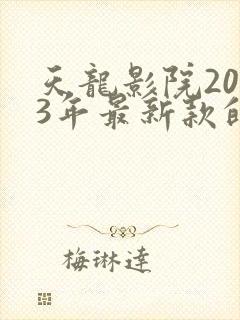 天龍影院20
3年最新款自
梅琳達